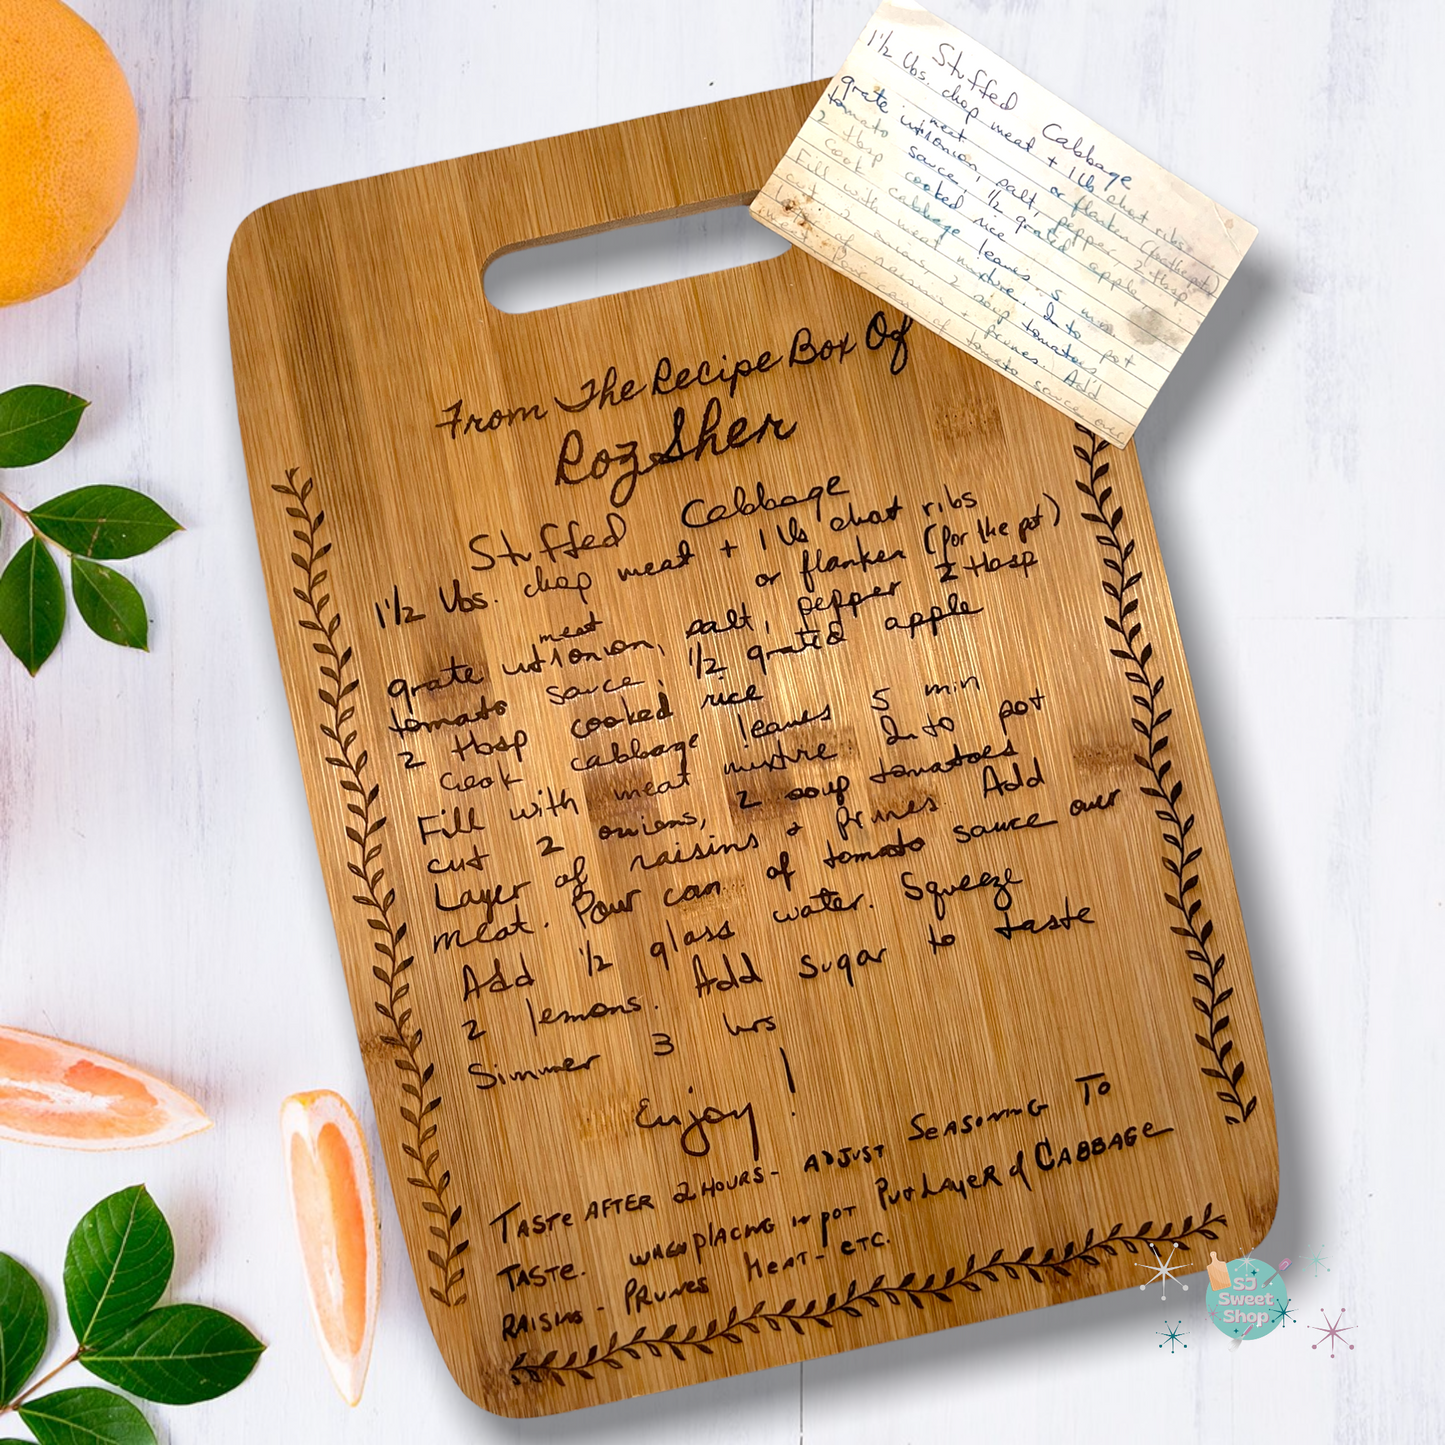 Stuffed Cabbage
1 1/2 lbs. chop meat + 1 lb chat ribs
or flanken (for the pot)
meat
grate w/ onion, salt, pepper 2 tbsp
tomato sauce, 1/2 grated apple
2 tbsp cooked rice
Cook cabbage leaves 5 min
Fill with meat mixture. Into pot
cut 2 onions, 2 soup tomatoes
Layer of raisins + prunes. Add
Pour can of tomato sauce over
From The Recipe Box Of
Roz Sher
Stuffed Cabbage
1 1/2 lbs. chop meat + 1 lb chat ribs
or flanken (for the pot)
meat
grate w/ onion, salt, pepper 2 tbsp
tomato sauce, 1/2 grated apple
2 tbsp cooked rice
Cook cabbage leaves 5 min
Fill with meat mixture Into pot
cut 2 onions, 2 soup tomatoes
Layer of raisins + prunes Add
meat. Pour can of tomato sauce over
Add 1/2 glass water. Squeeze
2 lemons. Add sugar to taste
Simmer 3 hrs
Enjoy!
TASTE AFTER 2 HOURS - ADJUST SEASONING TO
TASTE. WHEN PLACING IN POT PUT LAYER of CABBAGE
RAISINS - PRUNES MEAT - ETC.
SJ
Sweet
Shop